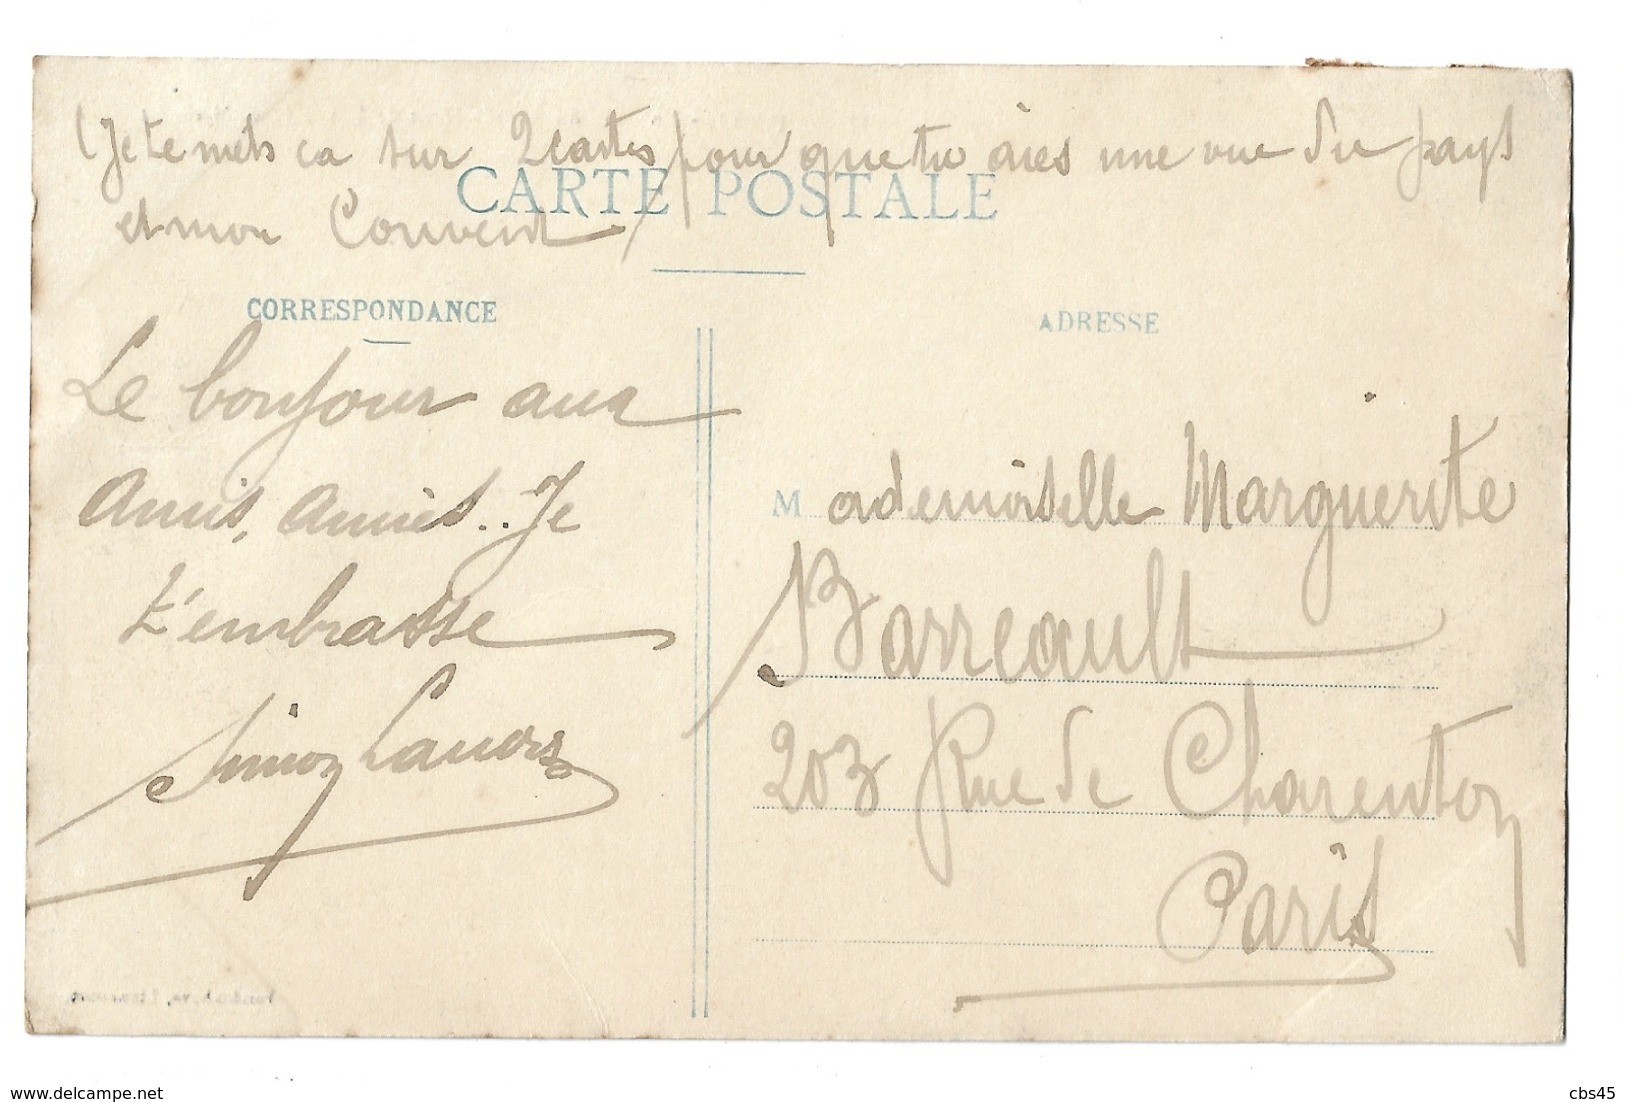 (Je te mets ca sur 2 cartes pour que tu aies une vue du pays
et mon Couvent)
CARTE POSTALE
CORRESPONDANCE
ADRESSE
Le bonjour aux
Amis, Amies.. Je
t'embrasse
Simon
Mademoiselle Marguerite
Barreault
203 Rue de Charenton
Paris
www.delcampe.net
cbs45